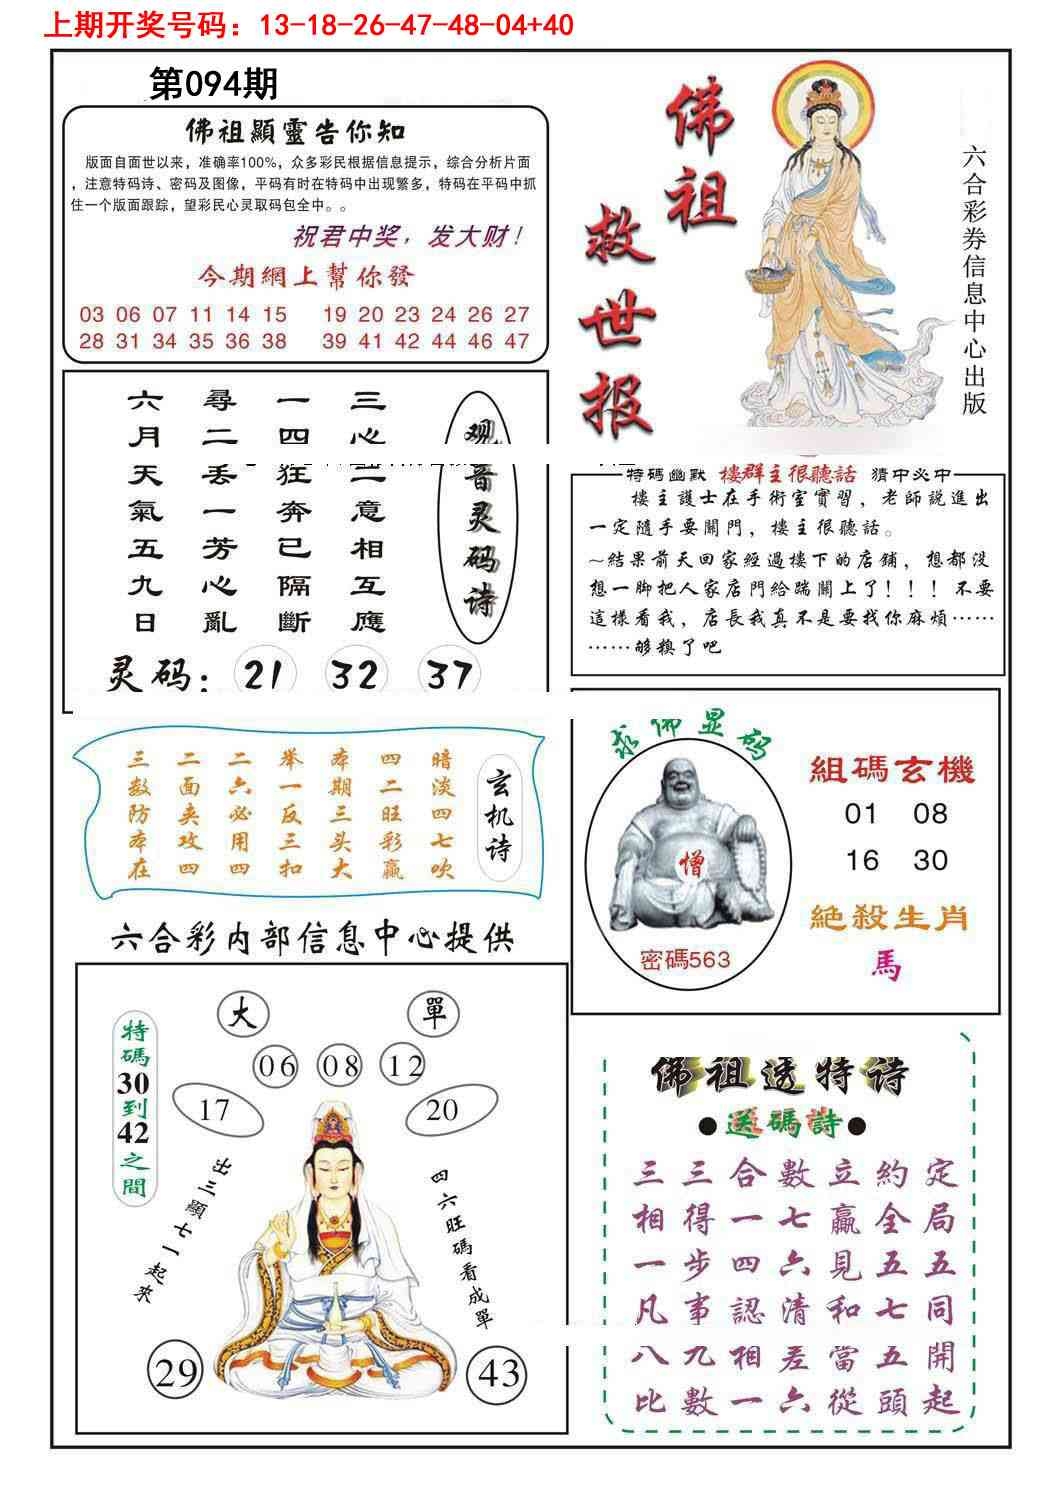 上期开奖号码：13-18-26-47-48-04+40
第094期
佛祖顯靈告你知
版面自面世以来，准确率100%，众多彩民根据信息提示，综合分析片面
，注意特码诗、密码及图像，平码有时在特码中出现繁多，特码在平码中抓
住一个版面跟踪，望彩民心灵取码包全中。。
祝君中奖，发大财！
今期網上幫你發
03 06 07 11 14 15 19 20 23 24 26 27
28 31 34 35 36 38 39 41 42 44 46 47
佛祖
救世报
六合彩券信息中心出版
观音灵码诗
三心二意相互應
一四狂奔已隔斷
尋二丢一芳心亂
六月天氣五九日
灵码：21 32 37
特碼幽默 樓群主很聽話 猜中必中
樓主護士在手術室實習，老師説進出
一定隨手要關門，樓主很聽話。
~結果前天回家經過樓下的店鋪，想都没
想一脚把人家店門給踹關上了！！！不要
這樣看我，店長我真不是要找你麻煩……
……够糗了吧
玄机诗
暗淡四七吹
四二旺彩赢
本期三头大
举一反三扣
二六必用四
二面夹攻四
三数防本在
求佛显码
僧
密碼563
組碼玄機
01 08
16 30
絶殺生肖
馬
六合彩内部信息中心提供
大 單
06 08 12
17 20
特碼30到42之間
出三顯七一起來
四六旺碼看成單
29 43
佛祖透特诗
●送碼詩●
三三合數立約定
相得一七贏全局
一步四六見五五
凡事認清和七同
八九相差當五開
比數一六從頭起